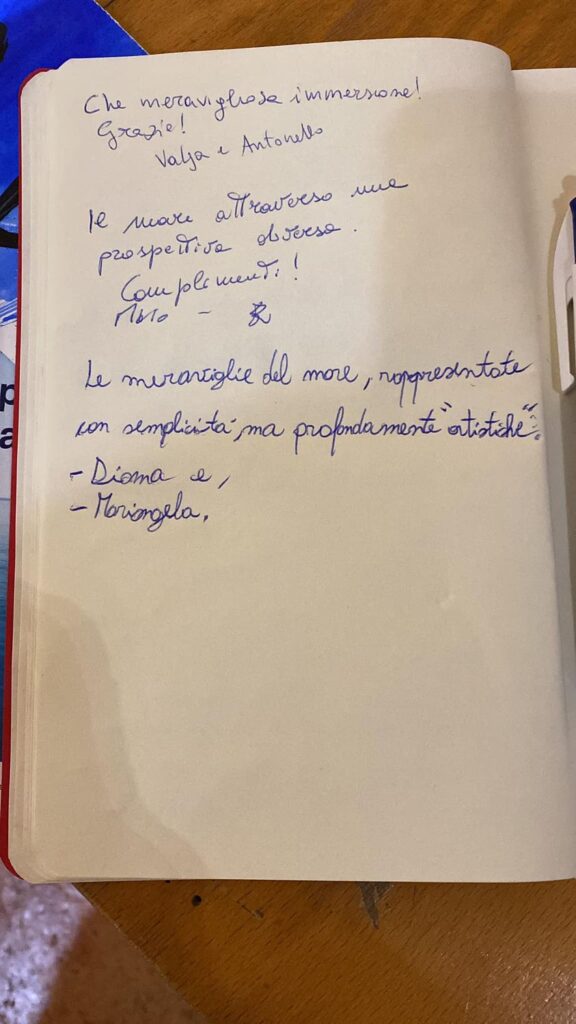 Che meravigliosa immersione!
Grazie!
e Antonello
Il mare attraverso una
prospettiva diversa.
Complimenti!
Le meraviglie del mare, rappresentate
con semplicità, ma profondamente "artistiche".
- Diana e,
- Mariangela.
p
a